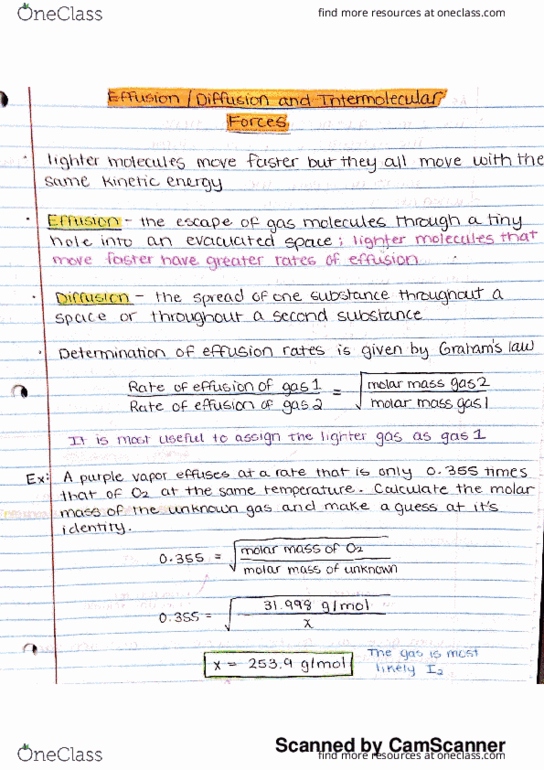 OneClass
find more resources at oneclass.com
Effusion / Diffusion and Intermolecular
Forces
lighter molecules move faster but they all move with the
same kinetic energy
Effusion - the escape of gas molecules through a tiny
hole into an evacuated space; lighter molecules that
move faster have greater rates of effusion
Diffusion - the spread of one substance throughout a
space or throughout a second substance
Determination of effusion rates is given by Graham's law
Rate of effusion of gas 1 = √ molar mass gas 2
Rate of effusion of gas 2 molar mass gas 1
It is most useful to assign the lighter gas as gas 1
Ex: A purple vapor effuses at a rate that is only 0.355 times
that of O2 at the same temperature. Calculate the molar
mass of the unknown gas and make a guess at it's
identity.
0.355 = √ molar mass of O2
molar mass of unknown
0.355 = √ 31.998 g/mol
x
x = 253.9 g/mol The gas is most
likely I2
OneClass
Scanned by CamScanner
find more resources at oneclass.com